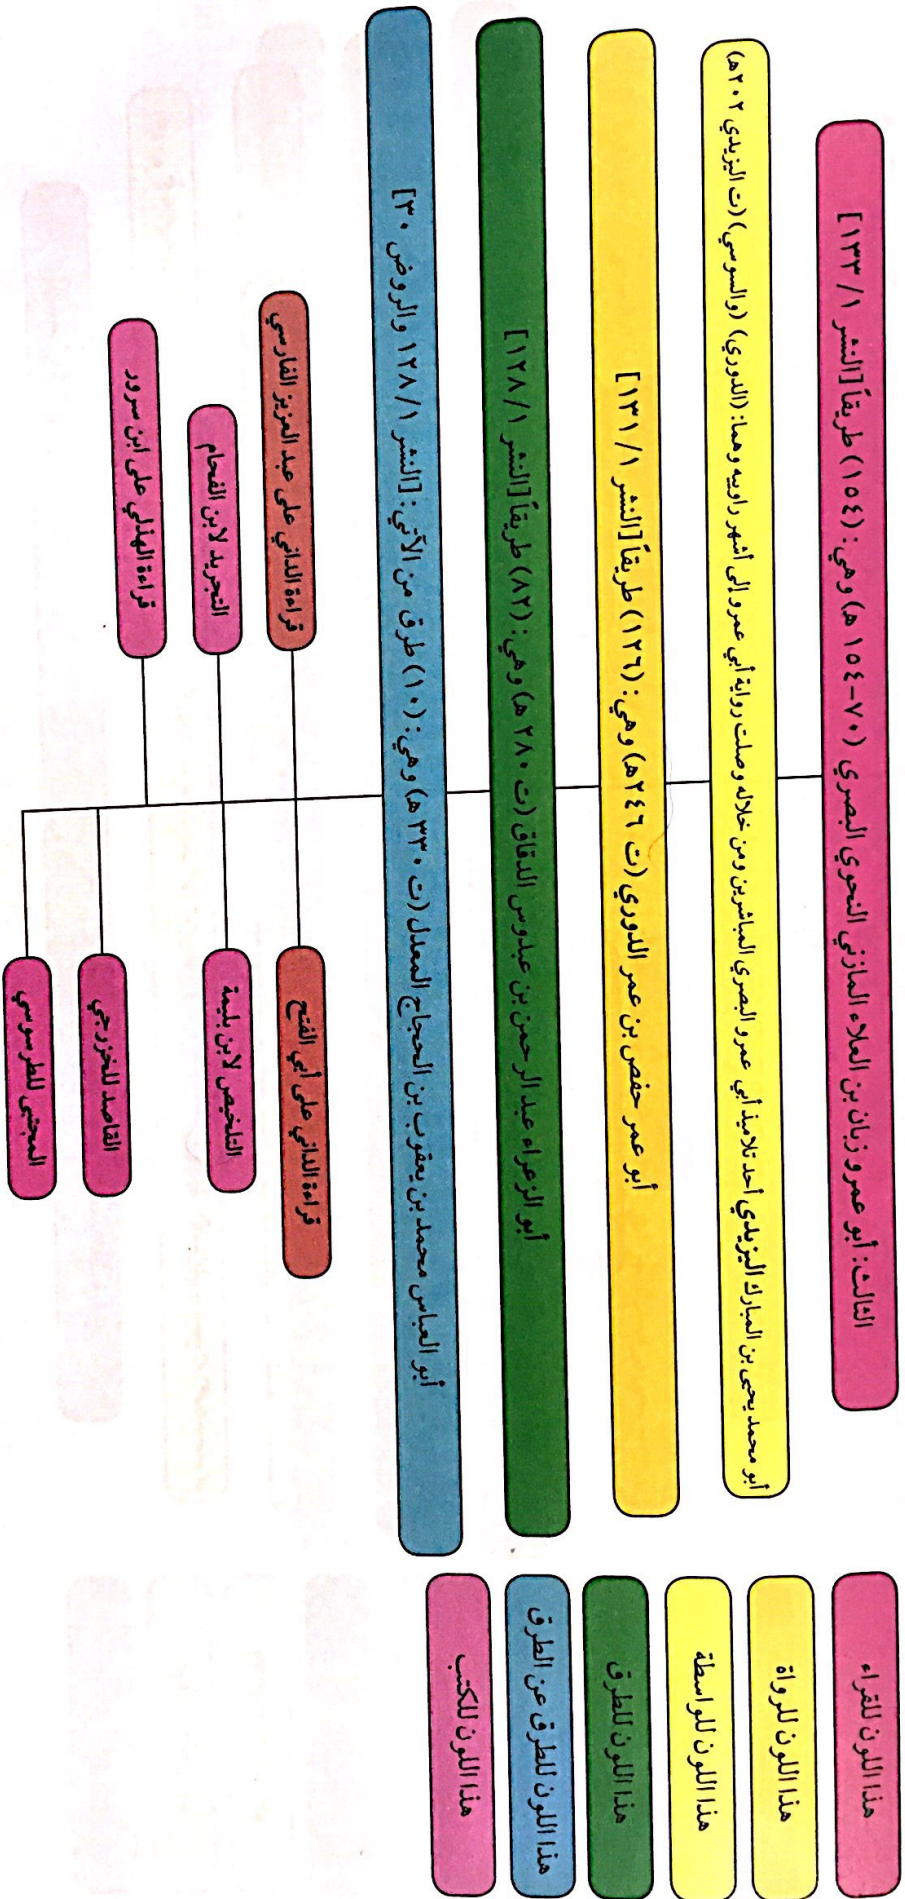 الثالث: أبو عمرو زبان بن العلاء المازني النحوي البصري (٧٠-١٥٤ هـ) وهي: (١٥٤) طريقاً [النشر ١/ ١٣٣]
أبو محمد يحيى بن المبارك اليزيدي أحد تلاميذ أبي عمرو البصري المباشرين ومن خلاله وصلت رواية أبي عمرو إلى أشهر راوييه وهما: (الدوري) (والسوسي) (ت اليزيدي ٢٠٢هـ)
أبو عمر حفص بن عمر الدوري (ت ٢٤٦هـ) وهي: (١٢٦) طريقاً [النشر ١/ ١٣١]
أبو الزعراء عبد الرحمن بن عبدوس الدقاق (ت ٢٨٠ هـ) وهي: (٨٢) طريقاً [النشر ١/ ١٢٨]
أبو العباس محمد بن يعقوب بن الحجاج المعدل (ت ٣٣٠ هـ) وهي: (١٠) طرق من الآتي: [النشر ١/ ١٢٨ والروض ٣٠]
قراءة الداني على أبي الفتح
قراءة الداني على عبد العزيز الفارسي
التلخيص لابن بليمة
التجريد لابن الفحام
القاصد للخزرجي
قراءة الهذلي على ابن سرور
المجتبى للطرسوسي
هذا اللون للقراء
هذا اللون للرواة
هذا اللون للواسطة
هذا اللون للطرق
هذا اللون للطرق عن الطرق
هذا اللون للكتب